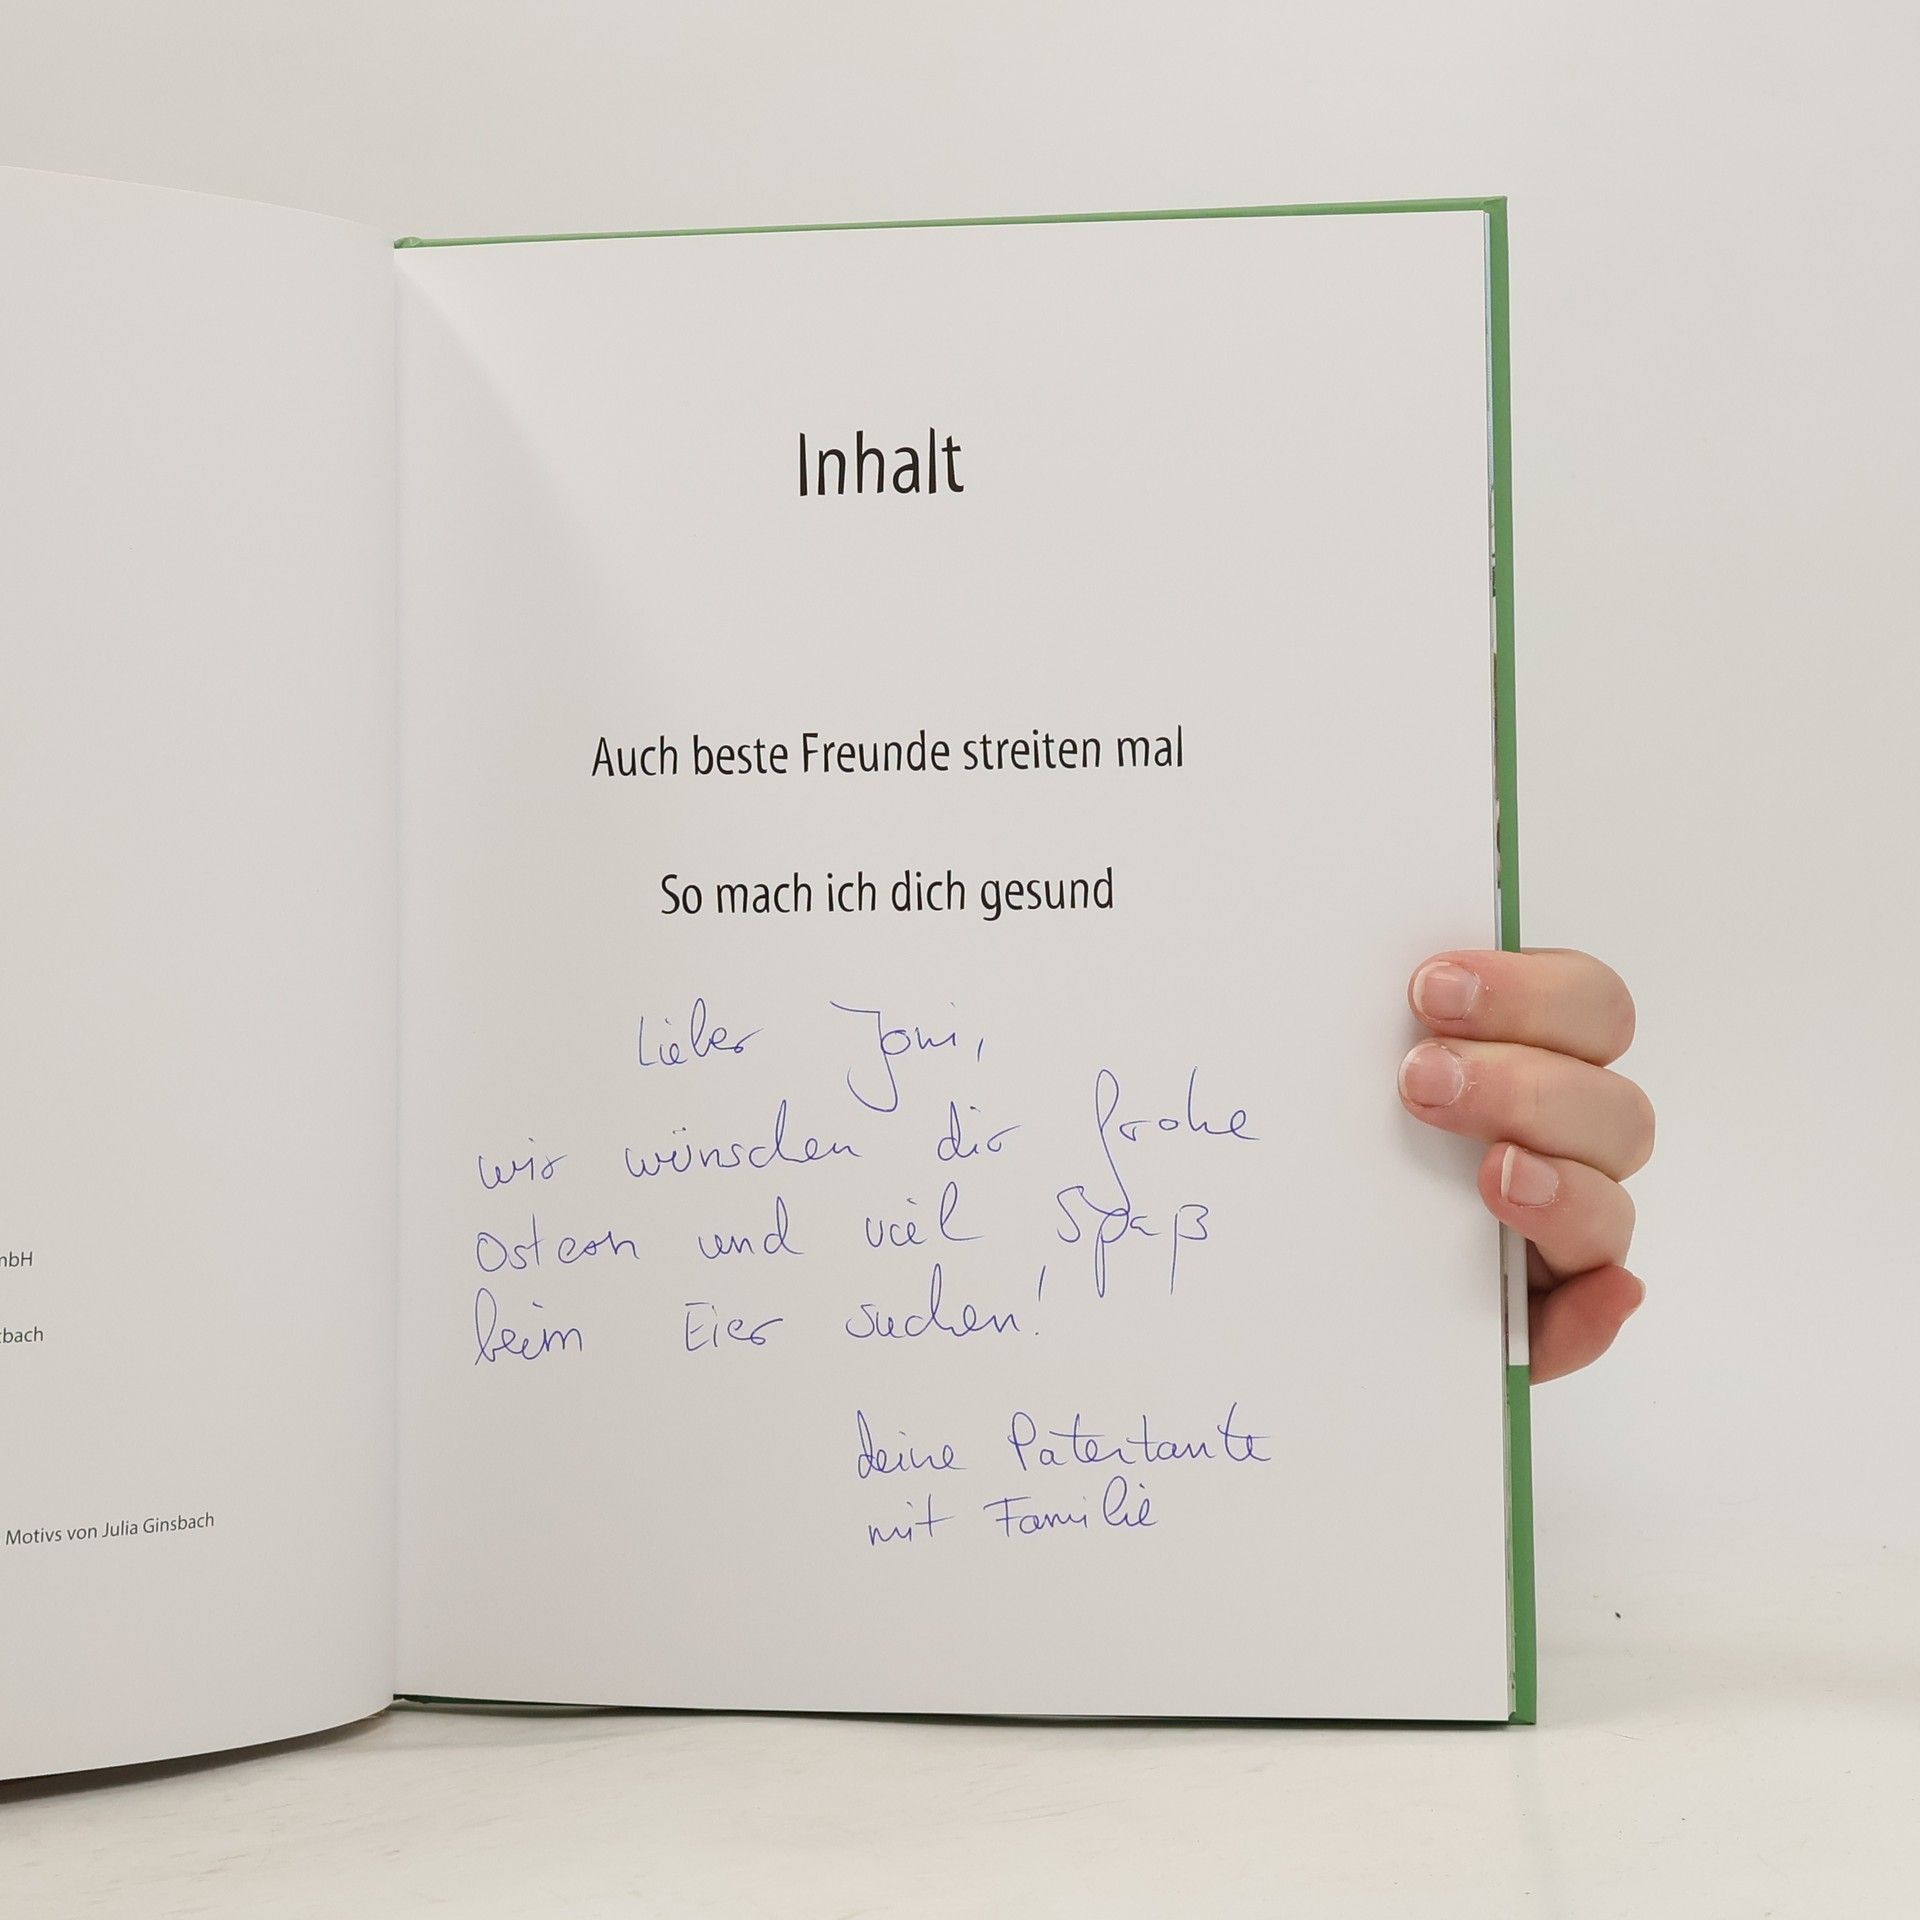 mbH
tbach
Motivs von Julia Ginsbach
Inhalt
Auch beste Freunde streiten mal
So mach ich dich gesund
Lieber Joni,
wir wünschen dir frohe
Ostern und viel Spaß
beim Eier suchen!
deine Patentante
mit Familie